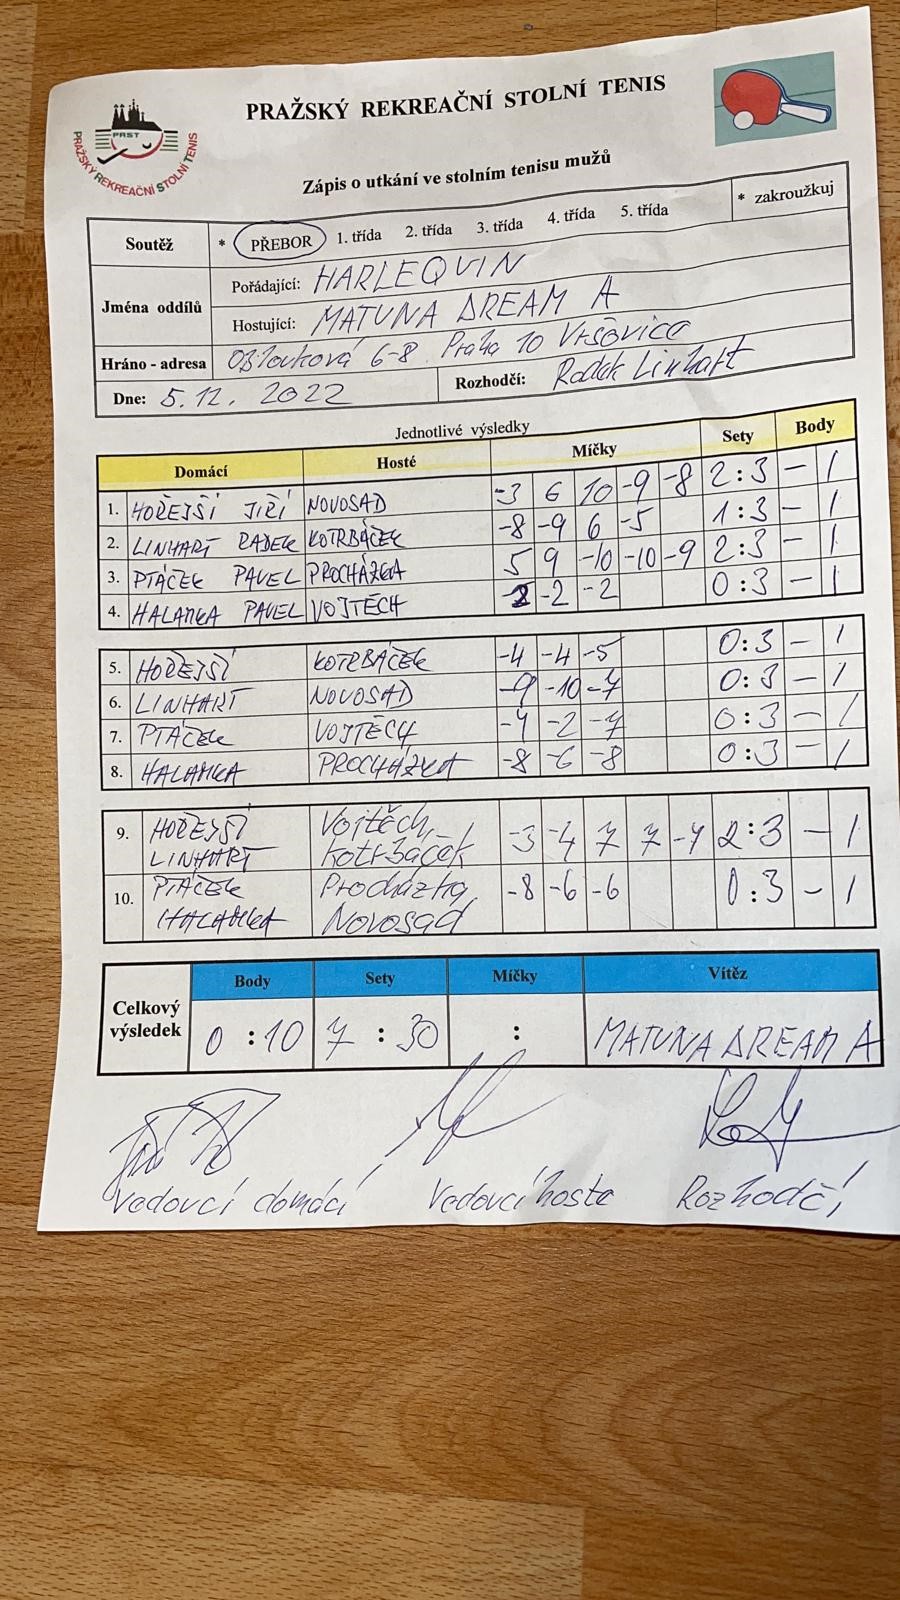 PRAŽSKÝ REKREAČNÍ STOLNÍ TENIS
PRST
PRAŽSKÝ REKREAČNÍ STOLNÍ TENIS
Zápis o utkání ve stolním tenisu mužů
Soutěž * PŘEBOR 1. třída 2. třída 3. třída 4. třída 5. třída * zakroužkuj
Jména oddílů
Pořádající: HARLEQVIN
Hostující: MATUNA DREAM A
Hráno - adresa Oblouková 6-8 Praha 10 Vršovice
Dne: 5.12. 2022 Rozhodčí: Radek Linhart
Jednotlivé výsledky
Domácí Hosté Míčky Sety Body
1. HOŘEJŠÍ JIŘÍ NOVOSAD -3 6 10 -9 -8 2:3 – 1
2. LINHART RADEK KOTRBÁČEK -8 -9 6 -5 1:3 – 1
3. PTÁČEK PAVEL PROCHÁZKA 5 9 -10 -10 -9 2:3 – 1
4. HALAMKA PAVEL VOJTĚCH -2 -2 0:3 – 1
5. HOŘEJŠÍ KOTRBÁČEK -4 -4 -5 0:3 – 1
6. LINHART NOVOSAD -9 -10 -7 0:3 – 1
7. PTÁČEK VOJTĚCH -4 -2 -7 0:3 – 1
8. HALAMKA PROCHÁZKA -8 -6 -8 0:3 – 1
9. HOŘEJŠÍ Vojtěch, -3 -4 7 7 -4 2:3 – 1
LINHART Kotrbáček
10. PTÁČEK Procházka, -8 -6 -6 0:3 – 1
HALAMKA Novosad
Body Sety Míčky Vítěz
Celkový výsledek 0 :10 7 : 30 : MATUNA DREAM A
Vedoucí domácí Vedoucí hosté Rozhodčí